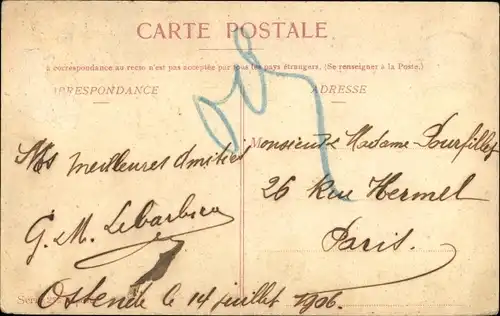 CARTE POSTALE
a correspondance au recto n'est pas acceptée par tous les pays étrangers. (Se renseigner à la Poste.)
RRESPONDANCE
ADRESSE
Mes meilleures amitiés
G. M.
Ostende le 14 juillet 1906.
Monsieur & Madame
26 Rue Hermel
Paris.